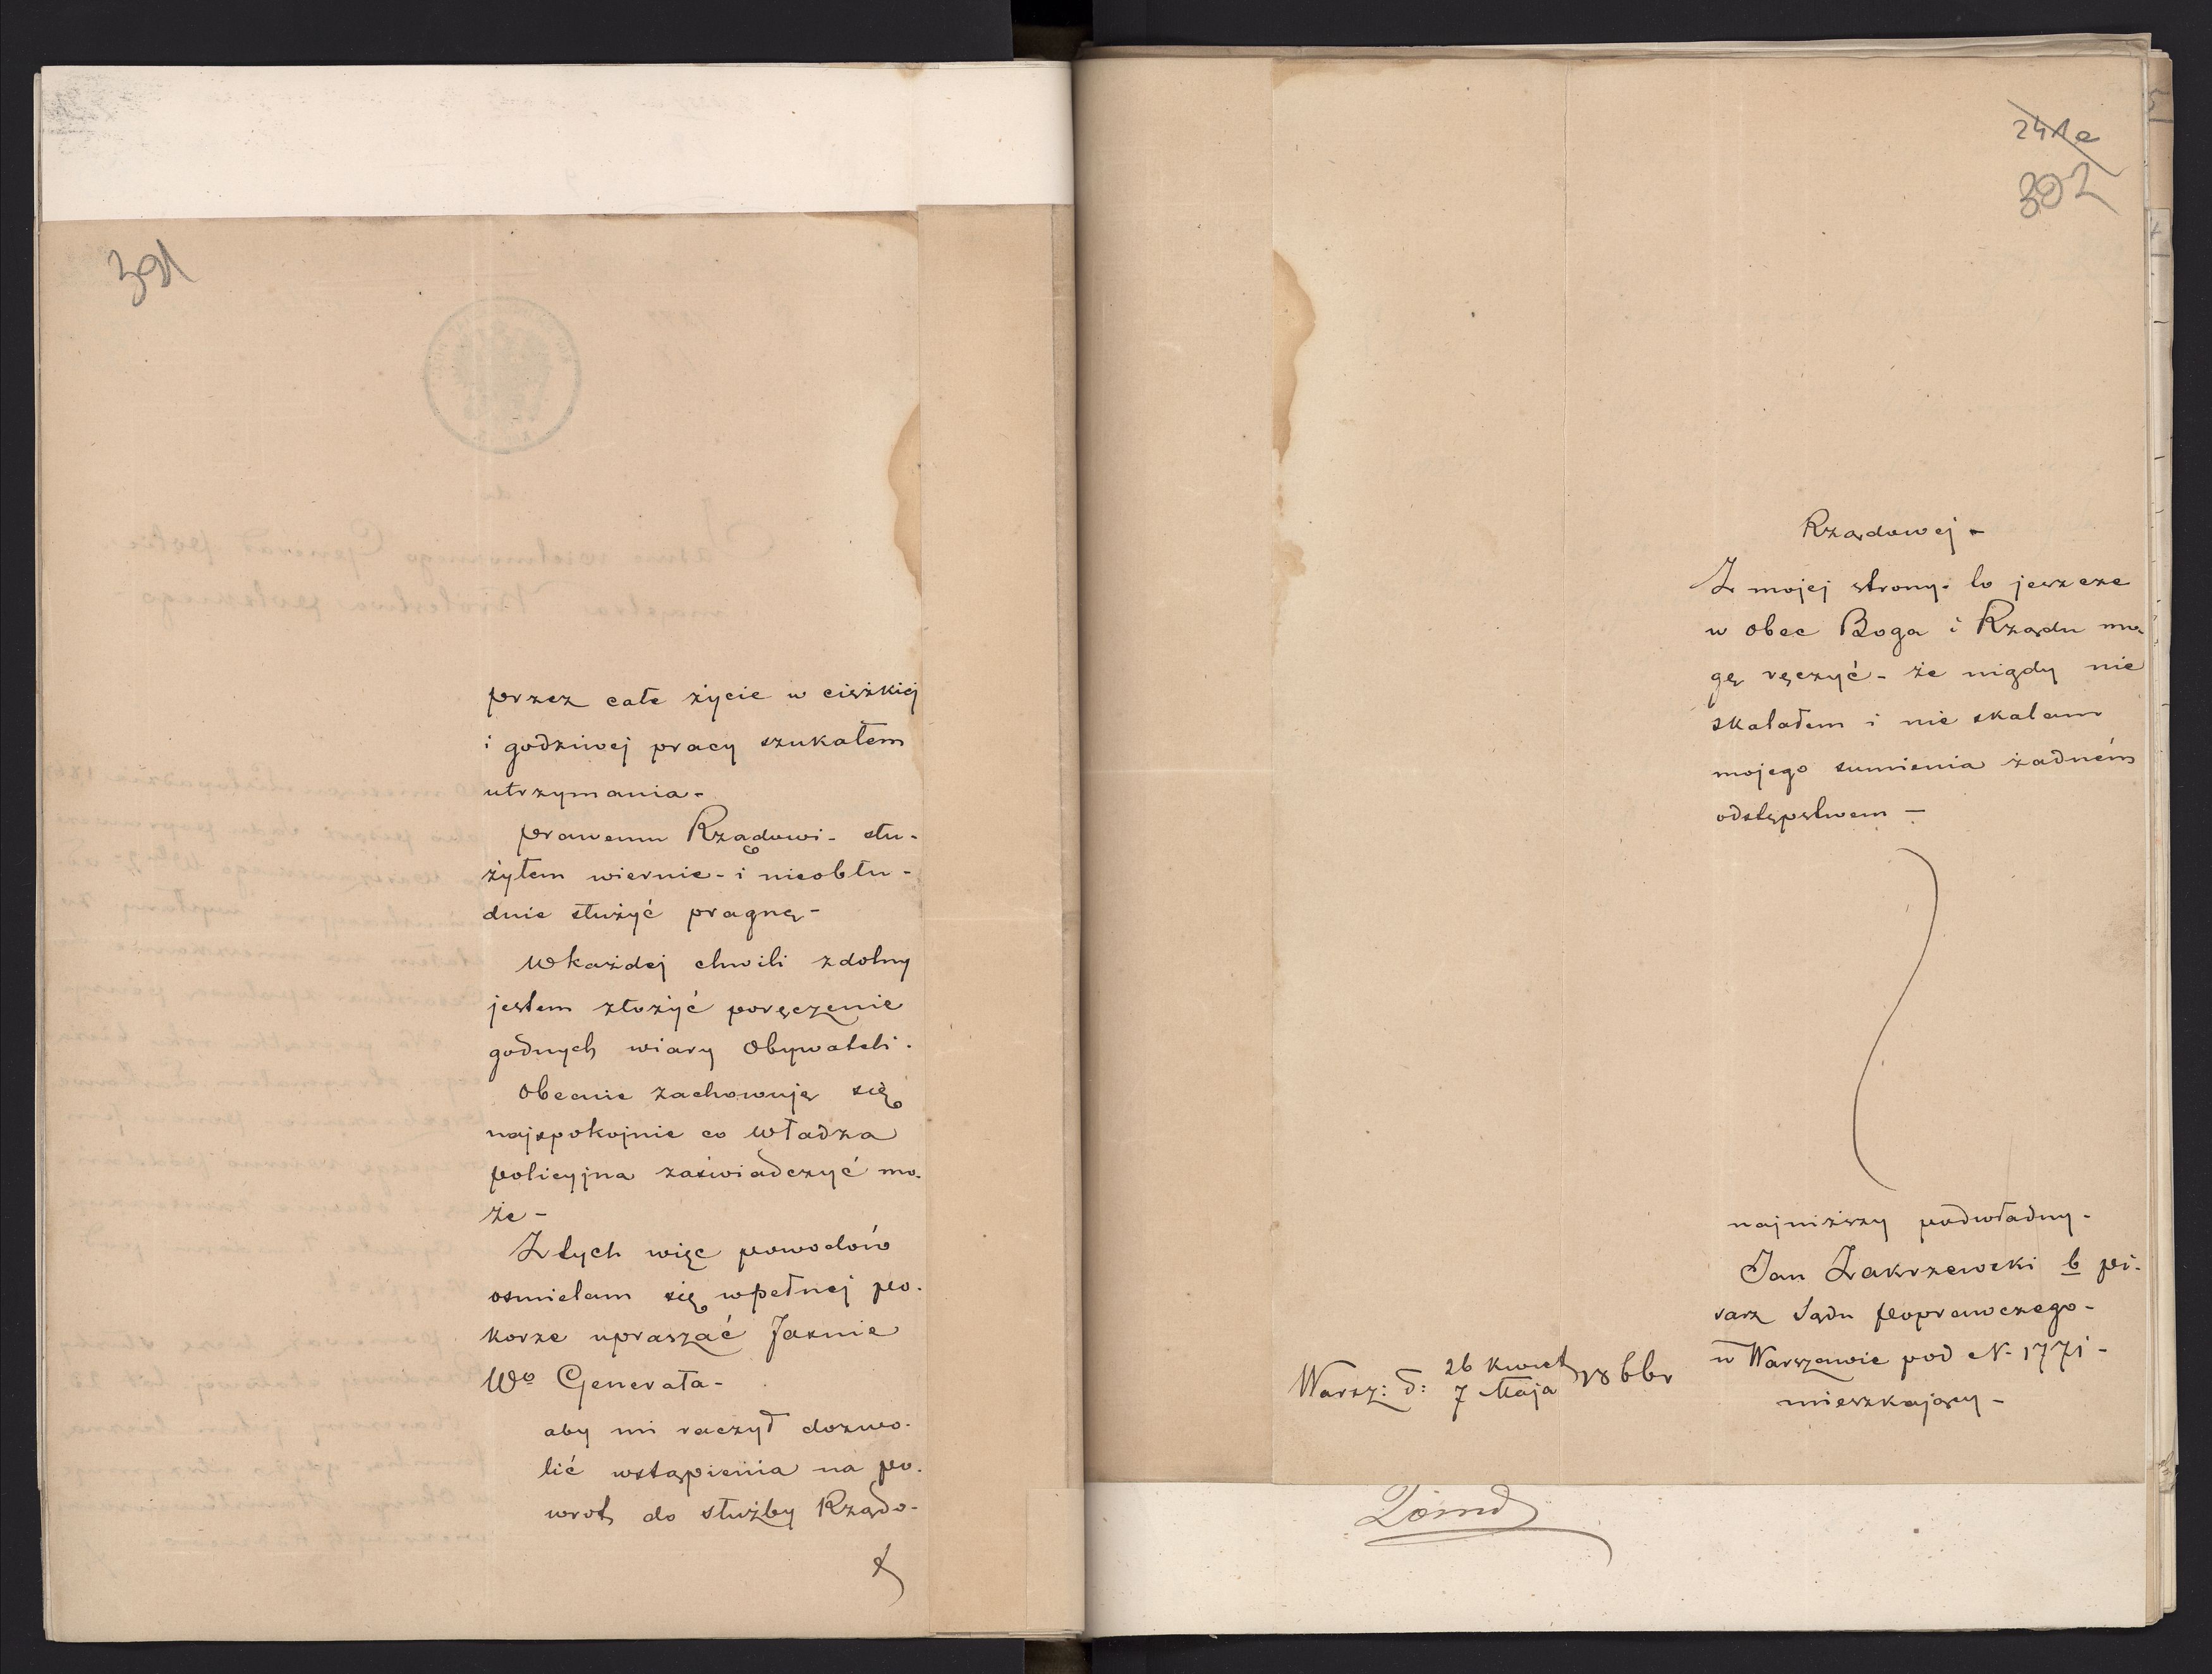 391
przez całe życie w ciężkiej
i godziwej pracy szukałem
utrzymania -
prawemu Rządowi - słu-
żyłem wiernie - i nieobłu-
dnie służyć pragnę -
W każdej chwili zdolny
jestem złożyć poręczenie
godnych wiary Obywateli.
Obecnie zachowuję się
najspokojnie co Władza
policyjna zaświadczyć mo-
że -
Z tych więc powodów
osmielam się wpełnej po-
korze upraszać Jaśnie
Wo Generała -
aby mi raczył dozwo-
lić wstąpienia na po-
wrot do służby Rządo-
241e
392
Rządowej -
Z mojej strony - to jeszcze
w obec Boga i Rządu mo-
gę ręczyć - że nigdy nie
skalałem i nie skalam
mojego sumienia żadném
odstępstwem -
najniższy podwładny -
Jan Zakrzewski b pi-
sarz Sądu poprawczego -
w Warszawie pod N. 1771 -
mieszkający -
Warsz: d: 26 Kwiet 1866r
7 Maja